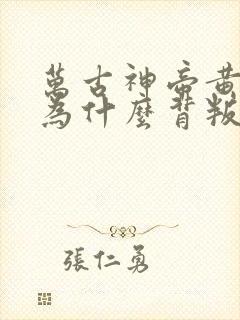 萬古神帝黃
為什麼背叛
張仁勇